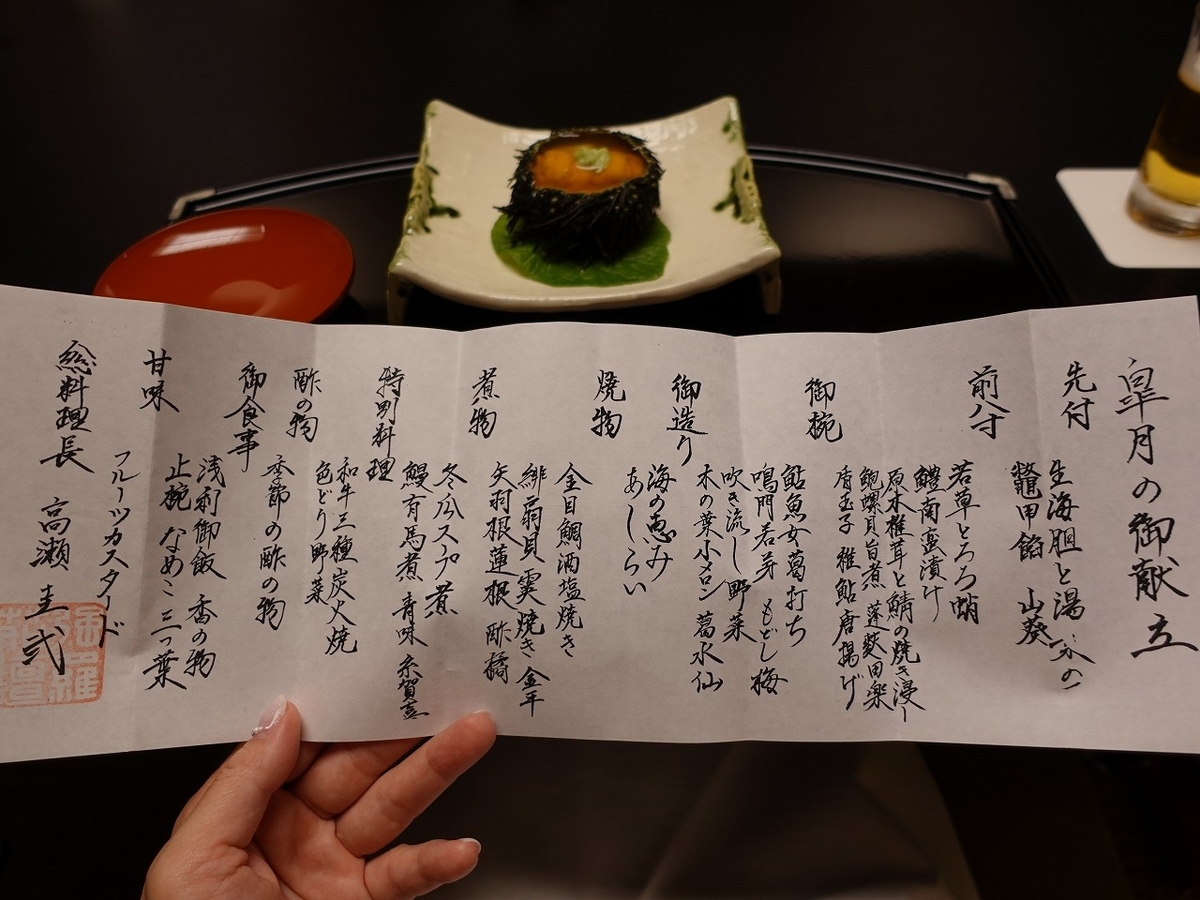 皐月の御献立
先付
生海胆と湯
鼈甲餡 山葵
前八寸
若草とろろ蛸
鱧南蛮漬け
原木椎茸と鯖の焼き浸し
鮑螺貝旨煮 蓬麩田楽
唐玉子 稚鮎唐揚げ
御椀
鮎魚女葛打ち
鳴門若芽 もどし梅
吹き流し野菜
木の葉小メロン 葛水仙
御造り
海の恵み
あしらい
焼物
金目鯛酒塩焼き
緋扇貝 雲焼き 金平
矢羽根蓮根 酢橘
煮物
冬瓜スープ煮
鰻有馬煮 青味 糸賀喜
特別料理
和牛三種炭火焼
色どり野菜
酢の物
季節の酢の物
御食事
浅利御飯 香の物
止椀 なめこ 三つ葉
甘味
フルーツカスタード
総料理長 高瀬圭弐